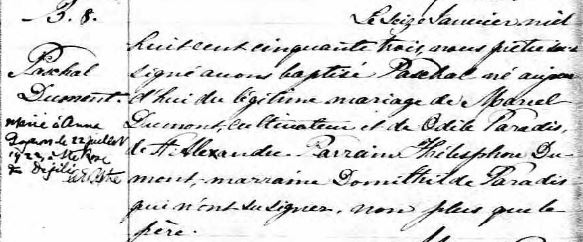 B. 8.
Paschal
Dumont.
marié à Anne
le 22 juillet
1923, à Ste Rose
Dégelé
Le seize Janvier mil
huit cent cinquante trois, nous prêtre sous
signé avons baptisé Paschal né aujour
d'hui du légitime mariage de Marcel
Dumont, cultivateur et de Odile Paradis,
de St. Alexandre. Parrain Thélesphore Du
mont, marraine Domithilde Paradis
qui n'ont su signer, non plus que le
père.